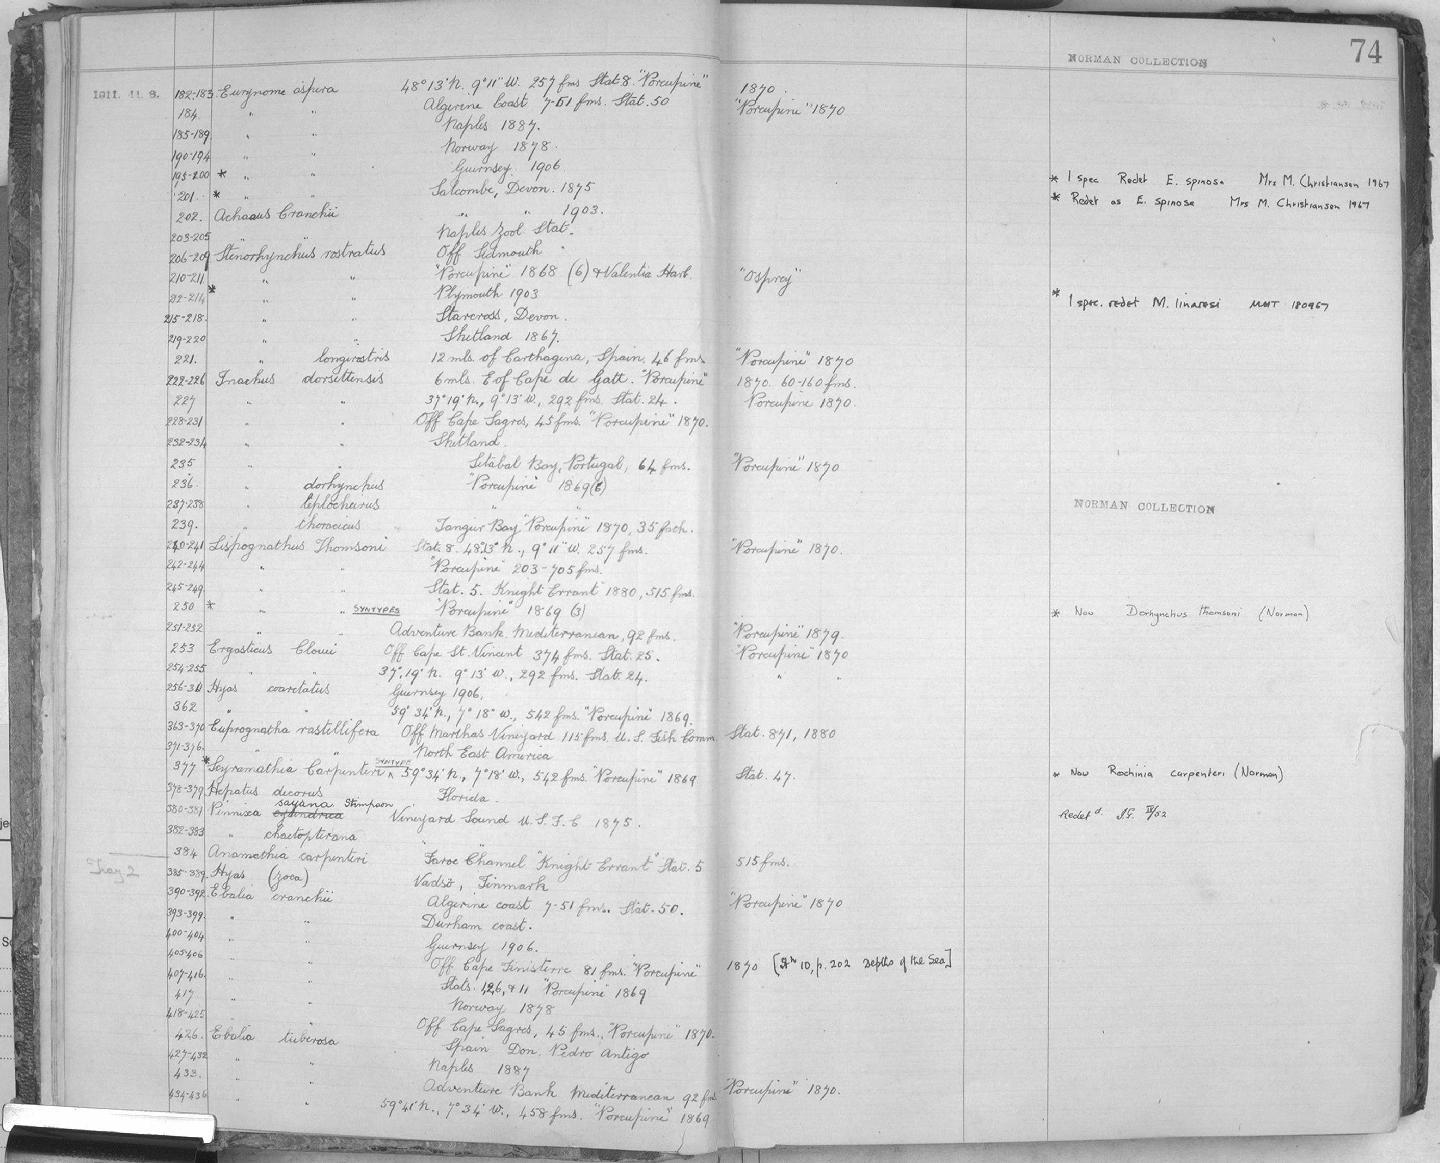 74
NORMAN COLLECTION
1911. 11. 8. 182-183 Eurynome aspera 48°13'N. 9°11'W. 257 fms Stat 8. "Porcupine" 1870.
184 " " Algerine Coast 7-51 fms. Stat. 50 "Porcupine" 1870
185-189 " " Naples 1887.
190-194 " " Norway 1878.
195-200 * " " Guernsey 1906 * 1 spec Redet E. spinosa Mrs M. Christiansen 1967
201. * " " Salcombe, Devon. 1875 * Redet as E. spinosa Mrs M. Christiansen 1967
202. Achaeus Cranchii " " 1903.
203-205 " " Naples Zool Stat.
206-209 Stenorhynchus rostratus Off Sidmouth
210-211 " " "Porcupine" 1868 (6) & Valentia Harb. "Osprey"
212-214 * " " Plymouth 1903 * 1 spec. redet M. linaresi 180967
215-218. " " Starcross, Devon.
219-220 " " Shetland 1867.
221. " longirostris 12 mls. of Carthagena, Spain, 46 fms "Porcupine" 1870
222-226 Inachus dorsettensis 6 mls. E of Cape de Gatt. "Porcupine" 1870. 60-160 fms.
227 " " 37°19'N., 9°13'W., 292 fms. Stat. 24. Porcupine 1870.
228-231 " " Off Cape Sagres, 45 fms. "Porcupine" 1870.
232-234 " " Shetland.
235 " " Setabal Bay, Portugal, 64 fms. "Porcupine" 1870
236. " dorhynchus "Porcupine" 1869 (6)
237-238 " leptocheirus " "
239. " thoracicus Tangier Bay, "Porcupine" 1870, 35 fath. NORMAN COLLECTION
240-241 Lispognathus Thomsoni Stat. 8. 48°13'N., 9°11'W. 257 fms. "Porcupine" 1870.
242-244 " " "Porcupine" 203-705 fms.
245-249. " " Stat. 5. Knight Errant 1880, 515 fms.
250 * " " SYNTYPES "Porcupine" 1869 (3) * Now Dorhynchus thomsoni (Norman)
251-252 " " Adventure Bank Mediterranean, 92 fms. "Porcupine" 1879.
253 Ergasticus Clouii Off Cape St. Vincent 374 fms. Stat. 25. "Porcupine" 1870
254-255 " " 37°.19'N. 9°13'W., 292 fms. Stat. 24. " "
256-361 Hyas coarctatus Guernsey 1906.
362 " " 59°34'N., 7°18'W., 542 fms. "Porcupine" 1869.
363-370 Euprognatha rastellifera Off Marthas Vineyard 115 fms. U.S. Fish Comm. Stat. 871, 1880
371-376. " " North East America
377 * Scyramathia Carpenteri SYNTYPE 59°34'N., 7°18'W., 542 fms. "Porcupine" 1869 Stat. 47. * Now Rochinia carpenteri (Norman)
378-379 Hepatus decorus Florida.
380-381 Pinnixa cylindrica sayana Stimpson Vineyard Sound U.S.F.C 1875. Redetd. IV/52
382-383 " chaetopterana
384 Anamathia carpenteri "Faroe" Channel "Knight Errant" Stat. 5 515 fms.
Tray 2
385-389. Hyas (zoea) Vadsö, Finmark
390-392. Ebalia cranchii Algerine coast 7-51 fms. Stat. 50. "Porcupine" 1870
393-399. " " Durham coast.
400-404 " " Guernsey 1906.
405-406 " " Off Cape Finisterre 81 fms. "Porcupine" 1870 [Stn 10, p. 202 Depths of the Sea]
407-416. " " Stats. & 11 "Porcupine" 1869
417 " " Norway 1878
418-425 " " Off Cape Sagres, 45 fms., "Porcupine" 1870.
426. Ebalia tuberosa Spain Don. Pedro Antigo
427-432 " " Naples 1887
433. " " Adventure Bank Mediterranean 92 fms "Porcupine" 1870.
434-436 " " 59°41'N., 7°34'W., 458 fms. "Porcupine" 1869